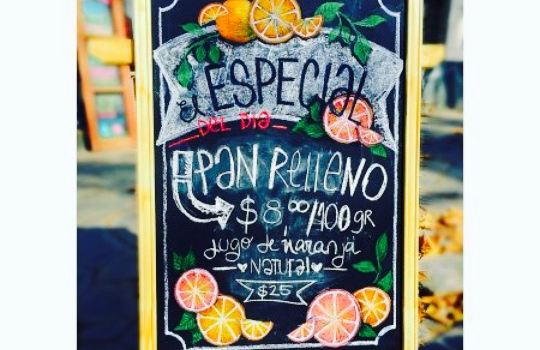 el ESPECIAL
DEL DIA
PAN RELLENO
$8.00/100gr
Jugo de naranja
NATURAL
$25